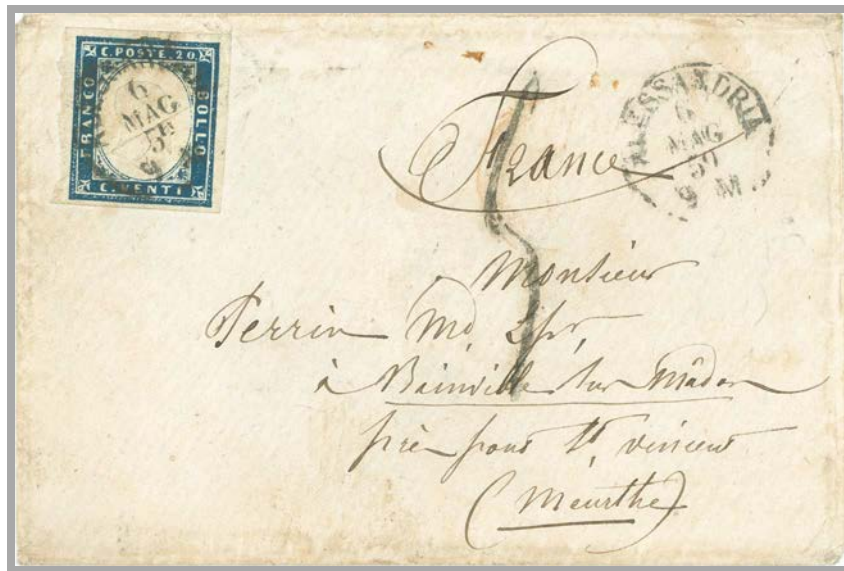 C. POSTE. 20
FRANCO
BOLLO
C. VENTI
6
MAG
59
ALESSANDRIA
6
MAG
59
9 M
France
Monsieur
Perrin Md
à Bainville sur Mâdon
près pont St. vincent
(Meurthe)